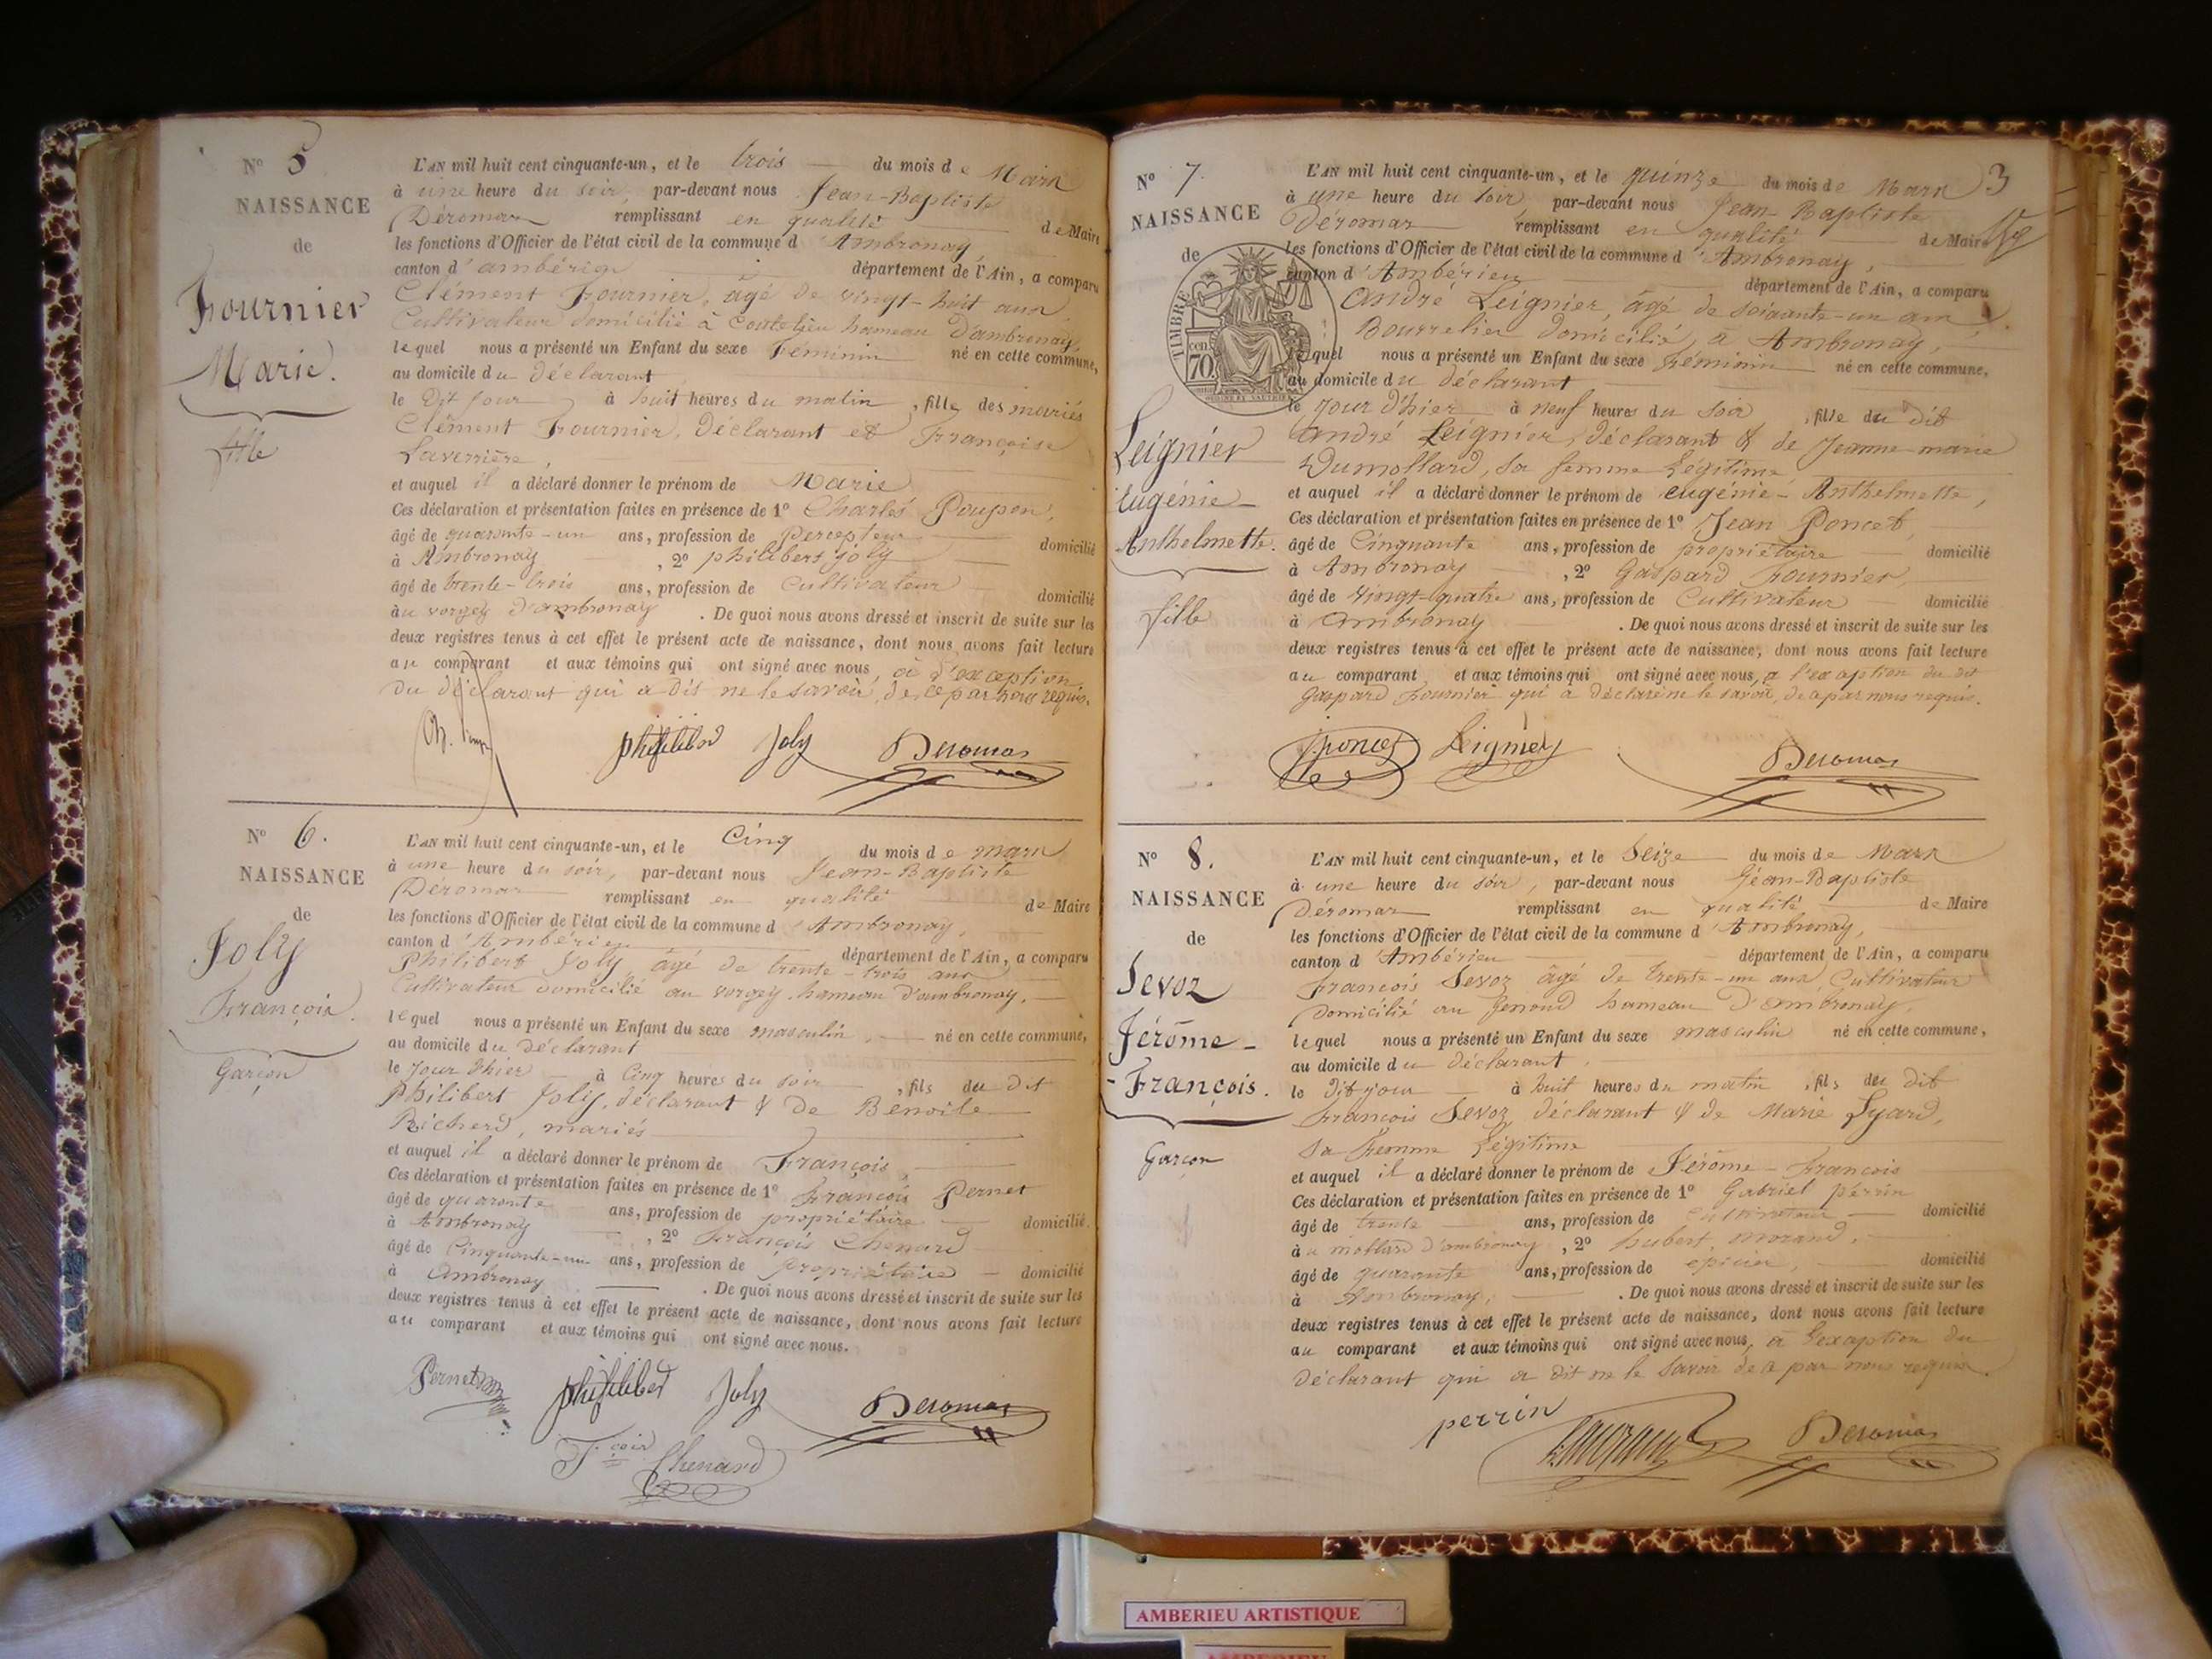 N° 5
NAISSANCE
de
Fournier
Marie.
fille
L'AN mil huit cent cinquante-un, et le trois du mois de Mars
à une heure du soir, par-devant nous Jean-Baptiste
Déromas remplissant en qualité de Maire
les fonctions d'Officier de l'état civil de la commune d'Ambronay,
canton d'ambérieu département de l'Ain, a comparu
Clément Fournier, âgé de vingt-huit ans
Cultivateur domicilié à Coutelieu hameau D'ambronay,
lequel nous a présenté un Enfant du sexe Féminin né en cette commune,
au domicile du déclarant
le dit jour à huit heures du matin, fille des mariés
Clément Fournier, déclarant et Françoise
Laverrière,
et auquel il a déclaré donner le prénom de Marie
Ces déclaration et présentation faites en présence de 1° Charles Poupon,
âgé de quarante-un ans, profession de Percepteur domicilié
à Ambronay, 2° philibert joly
âgé de trente-trois ans, profession de Cultivateur domicilié
au vorgey d'ambronay. De quoi nous avons dressé et inscrit de suite sur les
deux registres tenus à cet effet le présent acte de naissance, dont nous avons fait lecture
au comparant et aux témoins qui ont signé avec nous, à l'exception
du déclarant qui a dit ne le savoir, de ce par nous requis.
philibert Joly Deromas
N° 6.
NAISSANCE
de
Joly
François.
Garçon
L'AN mil huit cent cinquante-un, et le Cinq du mois de mars
à une heure du soir, par-devant nous Jean-Baptiste
Déromas remplissant en qualité de Maire
les fonctions d'Officier de l'état civil de la commune d'Ambronay,
canton d'Ambérieu département de l'Ain, a comparu
Philibert Joly, âgé de trente-trois ans
Cultivateur domicilié au vorgey, hameau d'ambronay,
lequel nous a présenté un Enfant du sexe masculin, né en cette commune,
au domicile du déclarant
le jour d'hier à Cinq heures du soir, fils du dit
Philibert Joly, déclarant & de Benoite
Richerd, mariés
et auquel il a déclaré donner le prénom de François,
Ces déclaration et présentation faites en présence de 1° François Pernet
âgé de quarante ans, profession de propriétaire domicilié
à Ambronay, 2° François Chenard
âgé de Cinquante-un ans, profession de propriétaire domicilié
à Ambronay. De quoi nous avons dressé et inscrit de suite sur les
deux registres tenus à cet effet le présent acte de naissance, dont nous avons fait lecture
au comparant et aux témoins qui ont signé avec nous.
Pernet philibert Joly Deromas
F.çois Chenard
3
N° 7.
NAISSANCE
de
TIMBRE
70 cen
Leignier
Eugénie-
Anthelmette.
fille
L'AN mil huit cent cinquante-un, et le quinze du mois de Mars
à une heure du soir, par-devant nous Jean-Baptiste
Déromas remplissant en qualité de Maire
les fonctions d'Officier de l'état civil de la commune d'Ambronay,
canton d'Ambérieu département de l'Ain, a comparu
André Leignier, âgé de soixante-un ans
Bourrelier domicilié, à Ambronay,
lequel nous a présenté un Enfant du sexe Féminin né en cette commune,
au domicile du déclarant
le jour d'hier à neuf heures du soir, fille du dit
André Leignier, déclarant & de Jeanne marie
Dumollard, sa femme Légitime
et auquel il a déclaré donner le prénom de eugénie-Anthelmette,
Ces déclaration et présentation faites en présence de 1° Jean Poncet,
âgé de Cinquante ans, profession de propriétaire domicilié
à Ambronay, 2° Gaspard Fournier,
âgé de vingt-quatre ans, profession de Cultivateur domicilié
à Ambronay. De quoi nous avons dressé et inscrit de suite sur les
deux registres tenus à cet effet le présent acte de naissance, dont nous avons fait lecture
au comparant, et aux témoins qui ont signé avec nous, a l'exception du dit
Gaspard Fournier qui a déclaré ne le savoir, de a par nous requis.
poncet Deromas
N° 8.
NAISSANCE
de
Sevoz
Jérôme-
-François.
Garçon
L'AN mil huit cent cinquante-un, et le Seize du mois de Mars
à une heure du soir, par-devant nous Jean-Baptiste
Déromas remplissant en qualité de Maire
les fonctions d'Officier de l'état civil de la commune d'Ambronay,
canton d'Ambérieu département de l'Ain, a comparu
François Sevoz âgé de trente-un ans, Cultivateur
domicilié au genoud hameau D'ambronay,
lequel nous a présenté un Enfant du sexe masculin né en cette commune,
au domicile du déclarant,
le dit jour à huit heures du matin, fils du dit
François Sevoz, déclarant & de Marie Lyard,
sa Femme Légitime
et auquel il a déclaré donner le prénom de Jérôme-François
Ces déclaration et présentation faites en présence de 1° Gabriel perrin
âgé de trente ans, profession de cultivateur domicilié
au mollard d'ambronay, 2° hubert morand,
âgé de quarante ans, profession de epicier, domicilié
à Ambronay, De quoi nous avons dressé et inscrit de suite sur les
deux registres tenus à cet effet le présent acte de naissance, dont nous avons fait lecture
au comparant et aux témoins qui ont signé avec nous, à l'exception du
déclarant qui a dit ne le savoir de a par nous requis.
perrin Deromas
AMBERIEU ARTISTIQUE
AMBERIEU